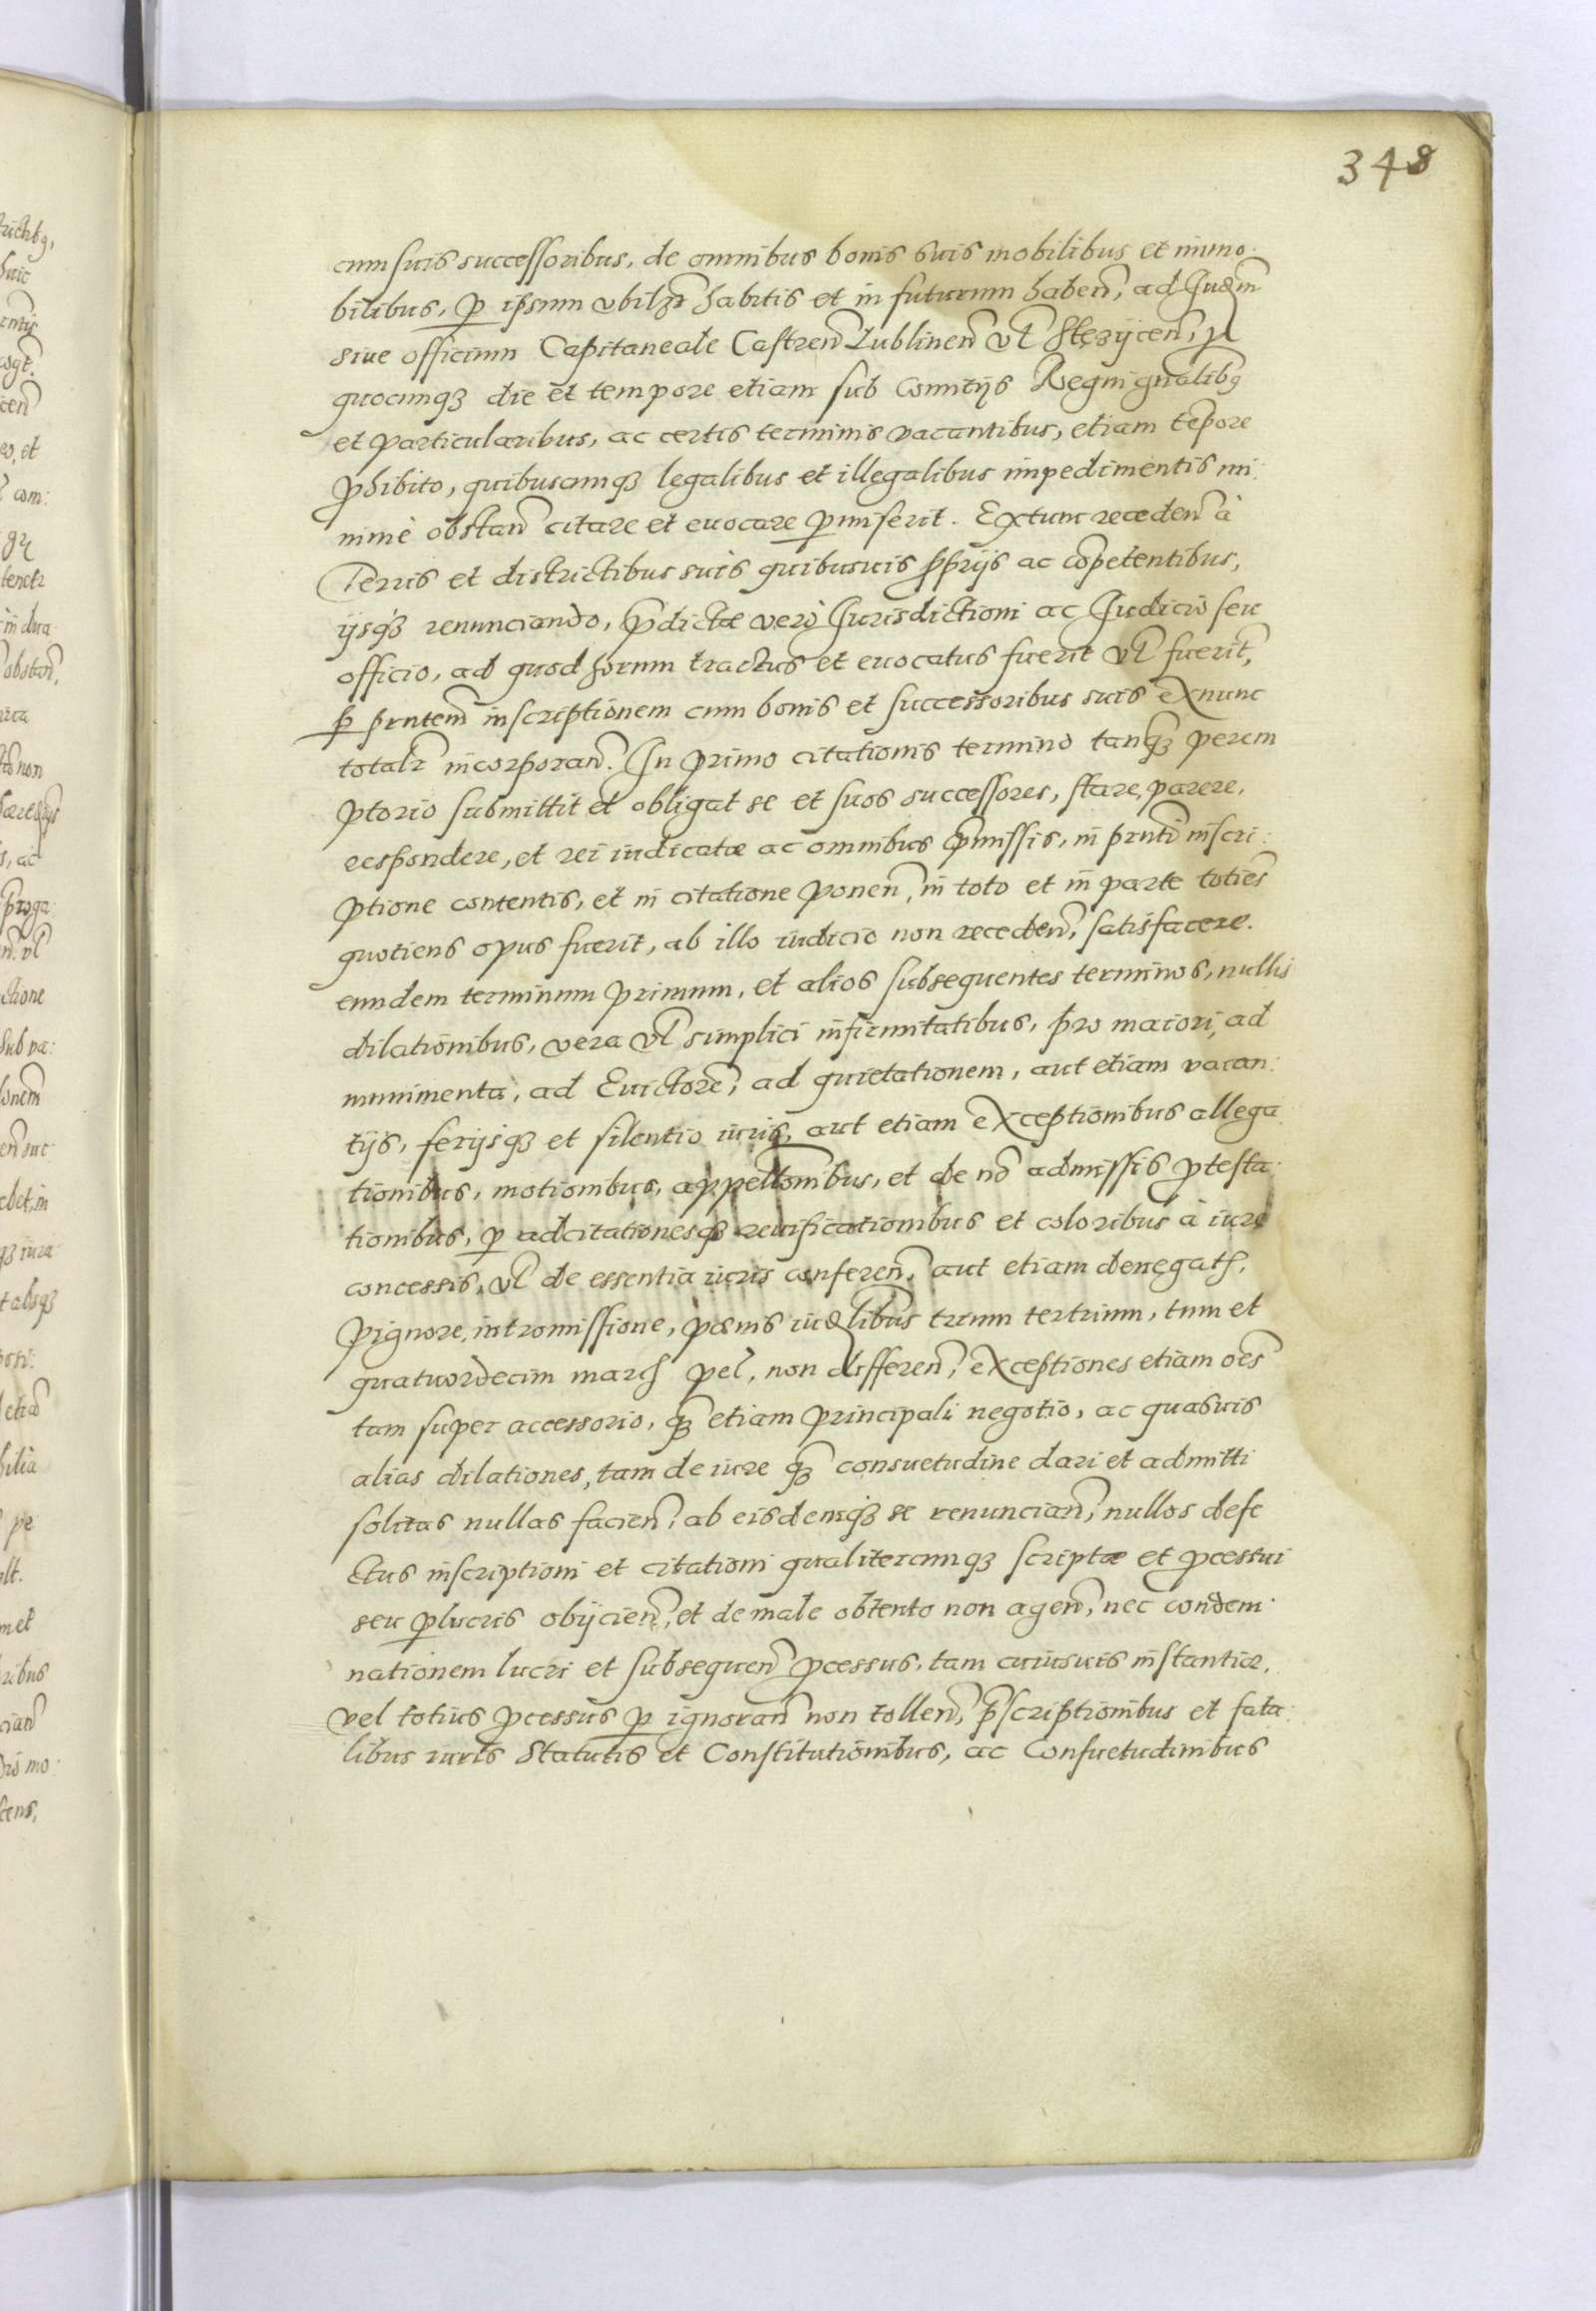 348
cum suis successoribus, de omnibus bonis suis mobilibus et immo
bilibus, p ipsum vbilꝫ habitis et in futurum haben, ad Iudm
siue officium Capitaneale Castren Lublinen vl Stęzÿcen, p
quocunqꝫ die et tempore etiam sub Comitijs Regni gnalibꝯ
et particularibus, ac certis terminis vacantibus, etiam tēpore
phibito, quibuscumqꝫ legalibus et illegalibus impedimentis mi:
nimè obstan citare et euocare pmiserit. Extunc receden à
Terris et districtibus suis quibusuis pprijs ac cōpetentibus,
ijsqꝫ renunciando, pdictæ verò Iurisdictioni ac Iudicio seu
officio, ad quod horum tractus et euocatus fuerit vl fuerit,
p pntem inscriptionem cum bonis et successoribus suis exnunc
totalr incorporan. In primo citationis termino tanqꝫ perem
ptorio submittit et obligat se et suos successores, stare, parere,
respondere, et rei iudicatæ ac omnibus pmissis, in pnti inscri:
ptione contentis, et in citatione ponen, in toto et in parte toties
quotiens opus fuerit, ab illo iudicio non receden, satisfacere.
eundem terminum primum, et alios subsequentes terminos, nullis
dilationibus, vera vl simplici infirmitatibus, pro maiori, ad
munimenta, ad Euictore, ad quietationem, aut etiam vacan:
tijs, ferijsqꝫ et silentio iuris, aut etiam exceptionibus allega
tionibus, motionibus, appellonibus, et de nō admissis ptesta:
tionibus, p adcitationesqꝫ reuisicationibus et coloribus à iure
concessis, vl de essentia iuris conferen, aut etiam denegatis,
pignore, intromissione, pœnis iudlibus trium tertrium, tum et
quatuordecim marc pel, non differen, exceptiones etiam oes
tam super accessorio, qꝫ etiam principali negotio, ac quasuis
alias dilationes, tam de iure qꝫ consuetudine dari et admitti
solitas nullas facien, ab eisdemqꝫ se renuncian, nullos defe
ctus inscriptioni et citationi qualitercunqꝫ scriptæ et pcessui
seu plucris obijcien, et de male obtento non agen, nec condem
nationem lucri et subsequen pcessus, tam cuiusuis instantiæ,
vel totius pcessus p ignoran non tollen, pscriptionibus et fata:
libus iuris Statutis et Constitutionibus, ac Consuetudinibus